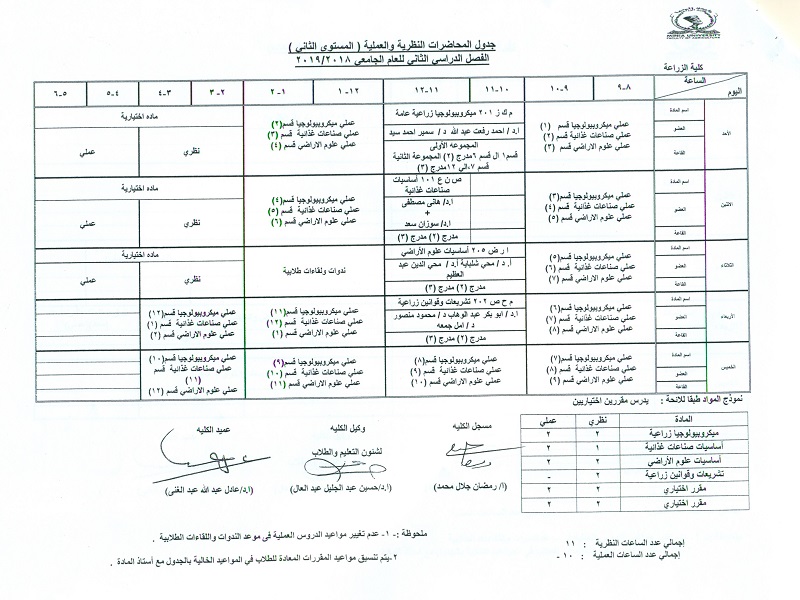 MINIA UNIVERSITY
جدول المحاضرات النظرية والعملية ( المستوى الثاني )
الفصل الدراسي الثاني للعام الجامعي ٢٠١٩/٢٠١٨
كلية الزراعة
الساعة
اليوم
٨-٩
٩-١٠
١٠-١١
١١-١٢
١٢-١
١-٢
٢-٣
٣-٤
٤-٥
٥-٦
الأحد
اسم المادة
العضو
القاعة
عملي ميكروبيولوجيا قسم (١)
عملي صناعات غذائية قسم (٢)
عملي علوم الاراضي قسم (٣)
م ك ز ٢٠١ ميكروبيولوجيا زراعية عامة
ا.د/ احمد رفعت عبد الله د / سمير احمد سيد
المجموعه الأولى
قسم ١ ال قسم ٦ مدرج (٢) المجموعة الثانية
قسم ٧،الي ١٢ مدرج (٣)
عملي ميكروبيولوجيا قسم(٢)
عملي صناعات غذائية قسم (٣)
عملي علوم الاراضي قسم (٤)
ماده اختيارية
نظري
عملي
الاثنين
اسم المادة
العضو
القاعة
عملي ميكروبيولوجيا قسم(٣)
عملي صناعات غذائية قسم (٤)
عملي علوم الاراضي قسم (٥)
ص ن ع ١٠١ أساسيات
صناعات غذائية
ا.د/ هانى مصطفى
+
ا.د/ سوزان سعد
مدرج (٢) مدرج (٣)
عملي ميكروبيولوجيا قسم(٤)
عملي صناعات غذائية قسم (٥)
عملي علوم الاراضي قسم (٦)
ماده اختيارية
نظري
عملي
الثلاثاء
اسم المادة
العضو
القاعة
عملي ميكروبيولوجيا قسم(٥)
عملي صناعات غذائية قسم (٦)
عملي علوم الاراضي قسم (٧)
ا ر ض ٢٠٥ أساسيات علوم الأراضي
أ.د / محي شلباية أ.د / محي الدين عبد
العظيم
مدرج (٢) مدرج (٣)
ندوات ولقاءات طلابية
ماده إختيارية
نظري
عملي
الاربعاء
اسم المادة
العضو
القاعة
عملي ميكروبيولوجيا قسم(٦)
عملي صناعات غذائية قسم (٧)
عملي علوم الاراضي قسم (٨)
م ح ص ٢٠٢ تشريعات وقوانين زراعية
ا.د/ ابو بكر عبد الوهاب د / محمود منصور
د / امل جمعه
مدرج (٢) مدرج (٣)
عملي ميكروبيولوجيا قسم(١١)
عملي صناعات غذائية قسم (١٢)
عملي علوم الاراضي قسم (١)
عملي ميكروبيولوجيا قسم(١٢)
عملي صناعات غذائية قسم (١)
عملي علوم الاراضي قسم (٢)
الخميس
اسم المادة
العضو
القاعة
عملي ميكروبيولوجيا قسم(٧)
عملي صناعات غذائية قسم (٨)
عملي علوم الاراضي قسم (٩)
عملي ميكروبيولوجيا قسم(٨)
عملي صناعات غذائية قسم (٩)
عملي علوم الاراضي قسم (١٠)
عملي ميكروبيولوجيا قسم(٩)
عملي صناعات غذائية قسم (١٠)
عملي علوم الاراضي قسم (١١)
عملي ميكروبيولوجيا قسم(١٠)
عملي صناعات غذائية قسم
(١١)
عملي علوم الاراضي قسم (١٢)
نموذج المواد طبقا للائحة : يدرس مقررين اختياريين
المادة نظري عملي
ميكروبيولوجيا زراعية ٢ ٢
أساسيات صناعات غذائية ١ ٢
أساسيات علوم الأراضي ٢ ٢
تشريعات وقوانين زراعية ٢ -
مقرر اختياري ٢ ٢
مقرر اختياري ٢ ٢
مسجل الكليه
(أ/ رمضان جلال محمد)
وكيل الكليه
لشئون التعليم والطلاب
(ا.د/حسين عبد الجليل عبد العال)
عميد الكليه
(ا.د/عادل عبد الله عبد الغنى)
إجمالي عدد الساعات النظرية ١١
إجمالي عدد الساعات العملية ١٠-
ملحوظة :-١- عدم تغيير مواعيد الدروس العملية فى موعد الندوات واللقاءات الطلابية .
٢-يتم تنسيق مواعيد المقررات المعادة للطلاب في المواعيد الخالية بالجدول مع أستاذ المادة .